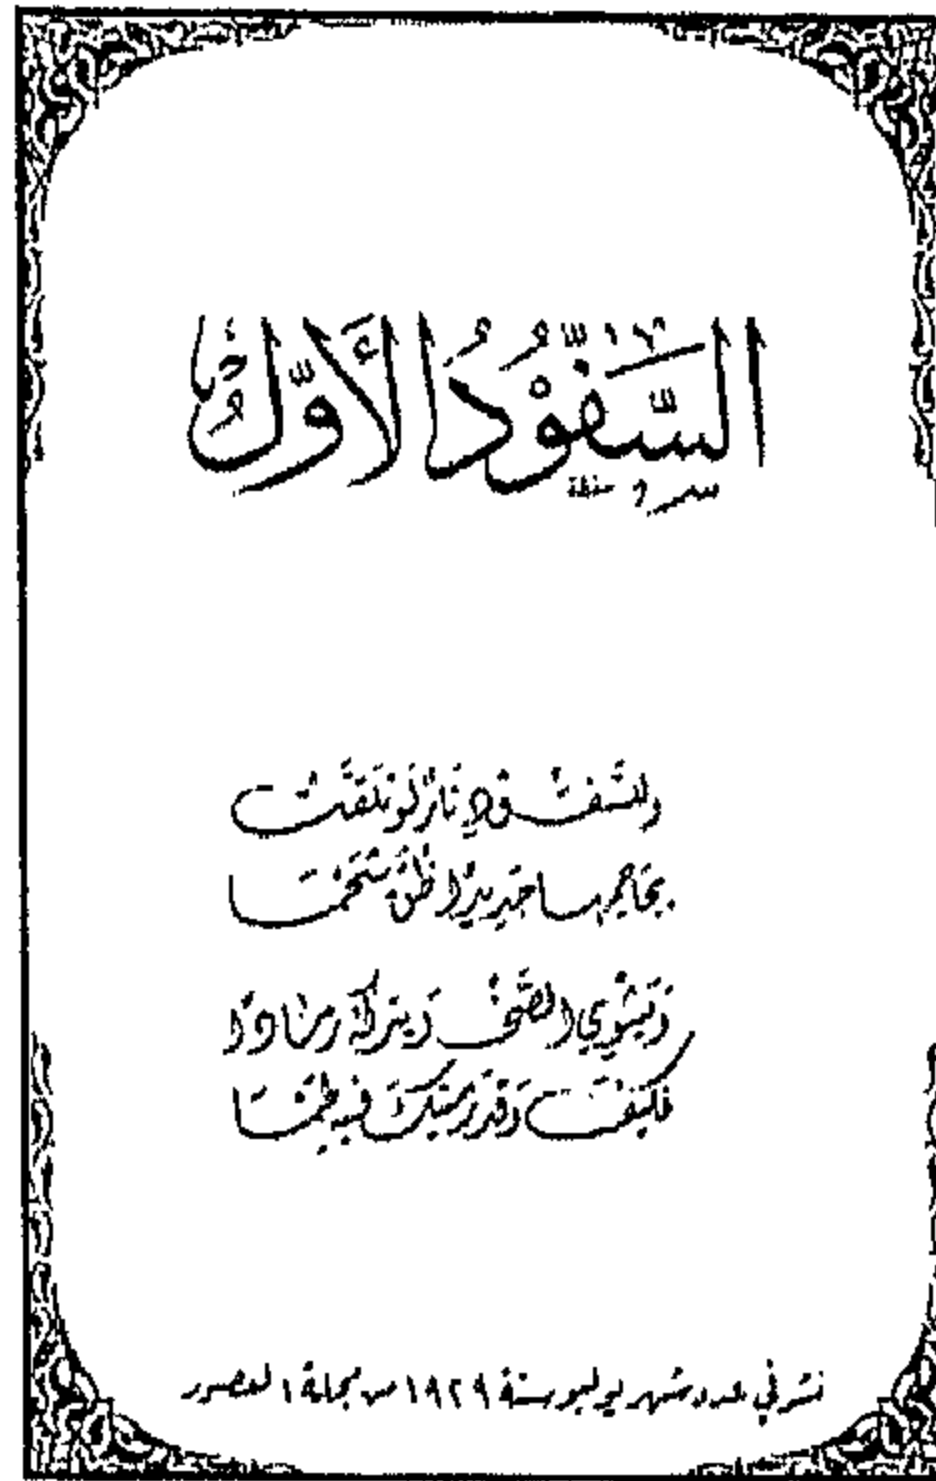 السَّفُّوْدُ الأَوَّلُ
وللسَّفُّودِ نَارٌ لَوْ تَلَقَّتْ
بِجَاحِمِهَا حَدِيدًا ظُنَّ شَحْمَا
وَيَشْوِي الصَّخْرَ يَتْرُكُهُ رَمَادًا
فَكَيْفَ وَقَدْ رَمَيْتُكَ فِيهِ لَحْمَا
نشر في عدد شهر يوليو سنة ١٩٢٩ من مجلة العصور